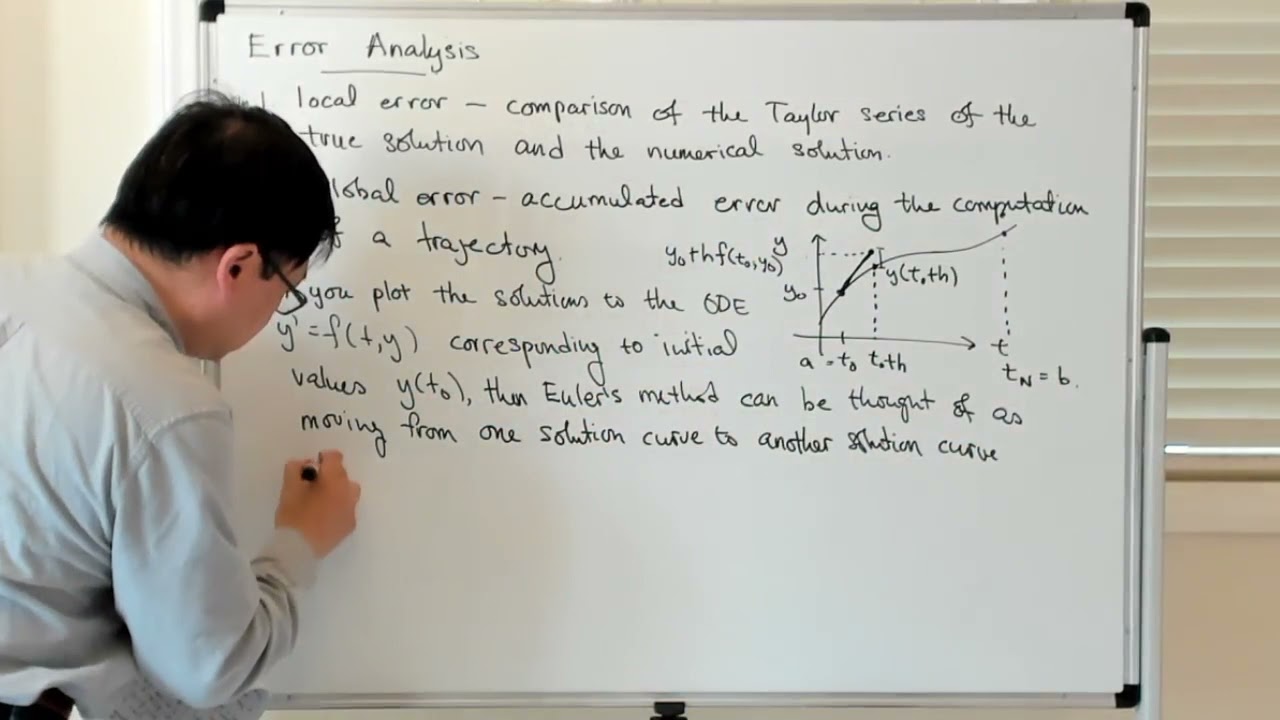 Error Analysis
local error – comparison of the Taylor series of the
true solution and the numerical solution.
lobal error – accumulated error during the computation
a trajectory.
you plot the solutions to the ODE
y' = f(t,y) corresponding to initial
values y(t₀), then Euler's method can be thought of as
moving from one solution curve to another solution curve
y
y₀+hf(t₀,y₀)
y(t₀+h)
y₀
t
a = t₀ t₀+h
t_N = b.